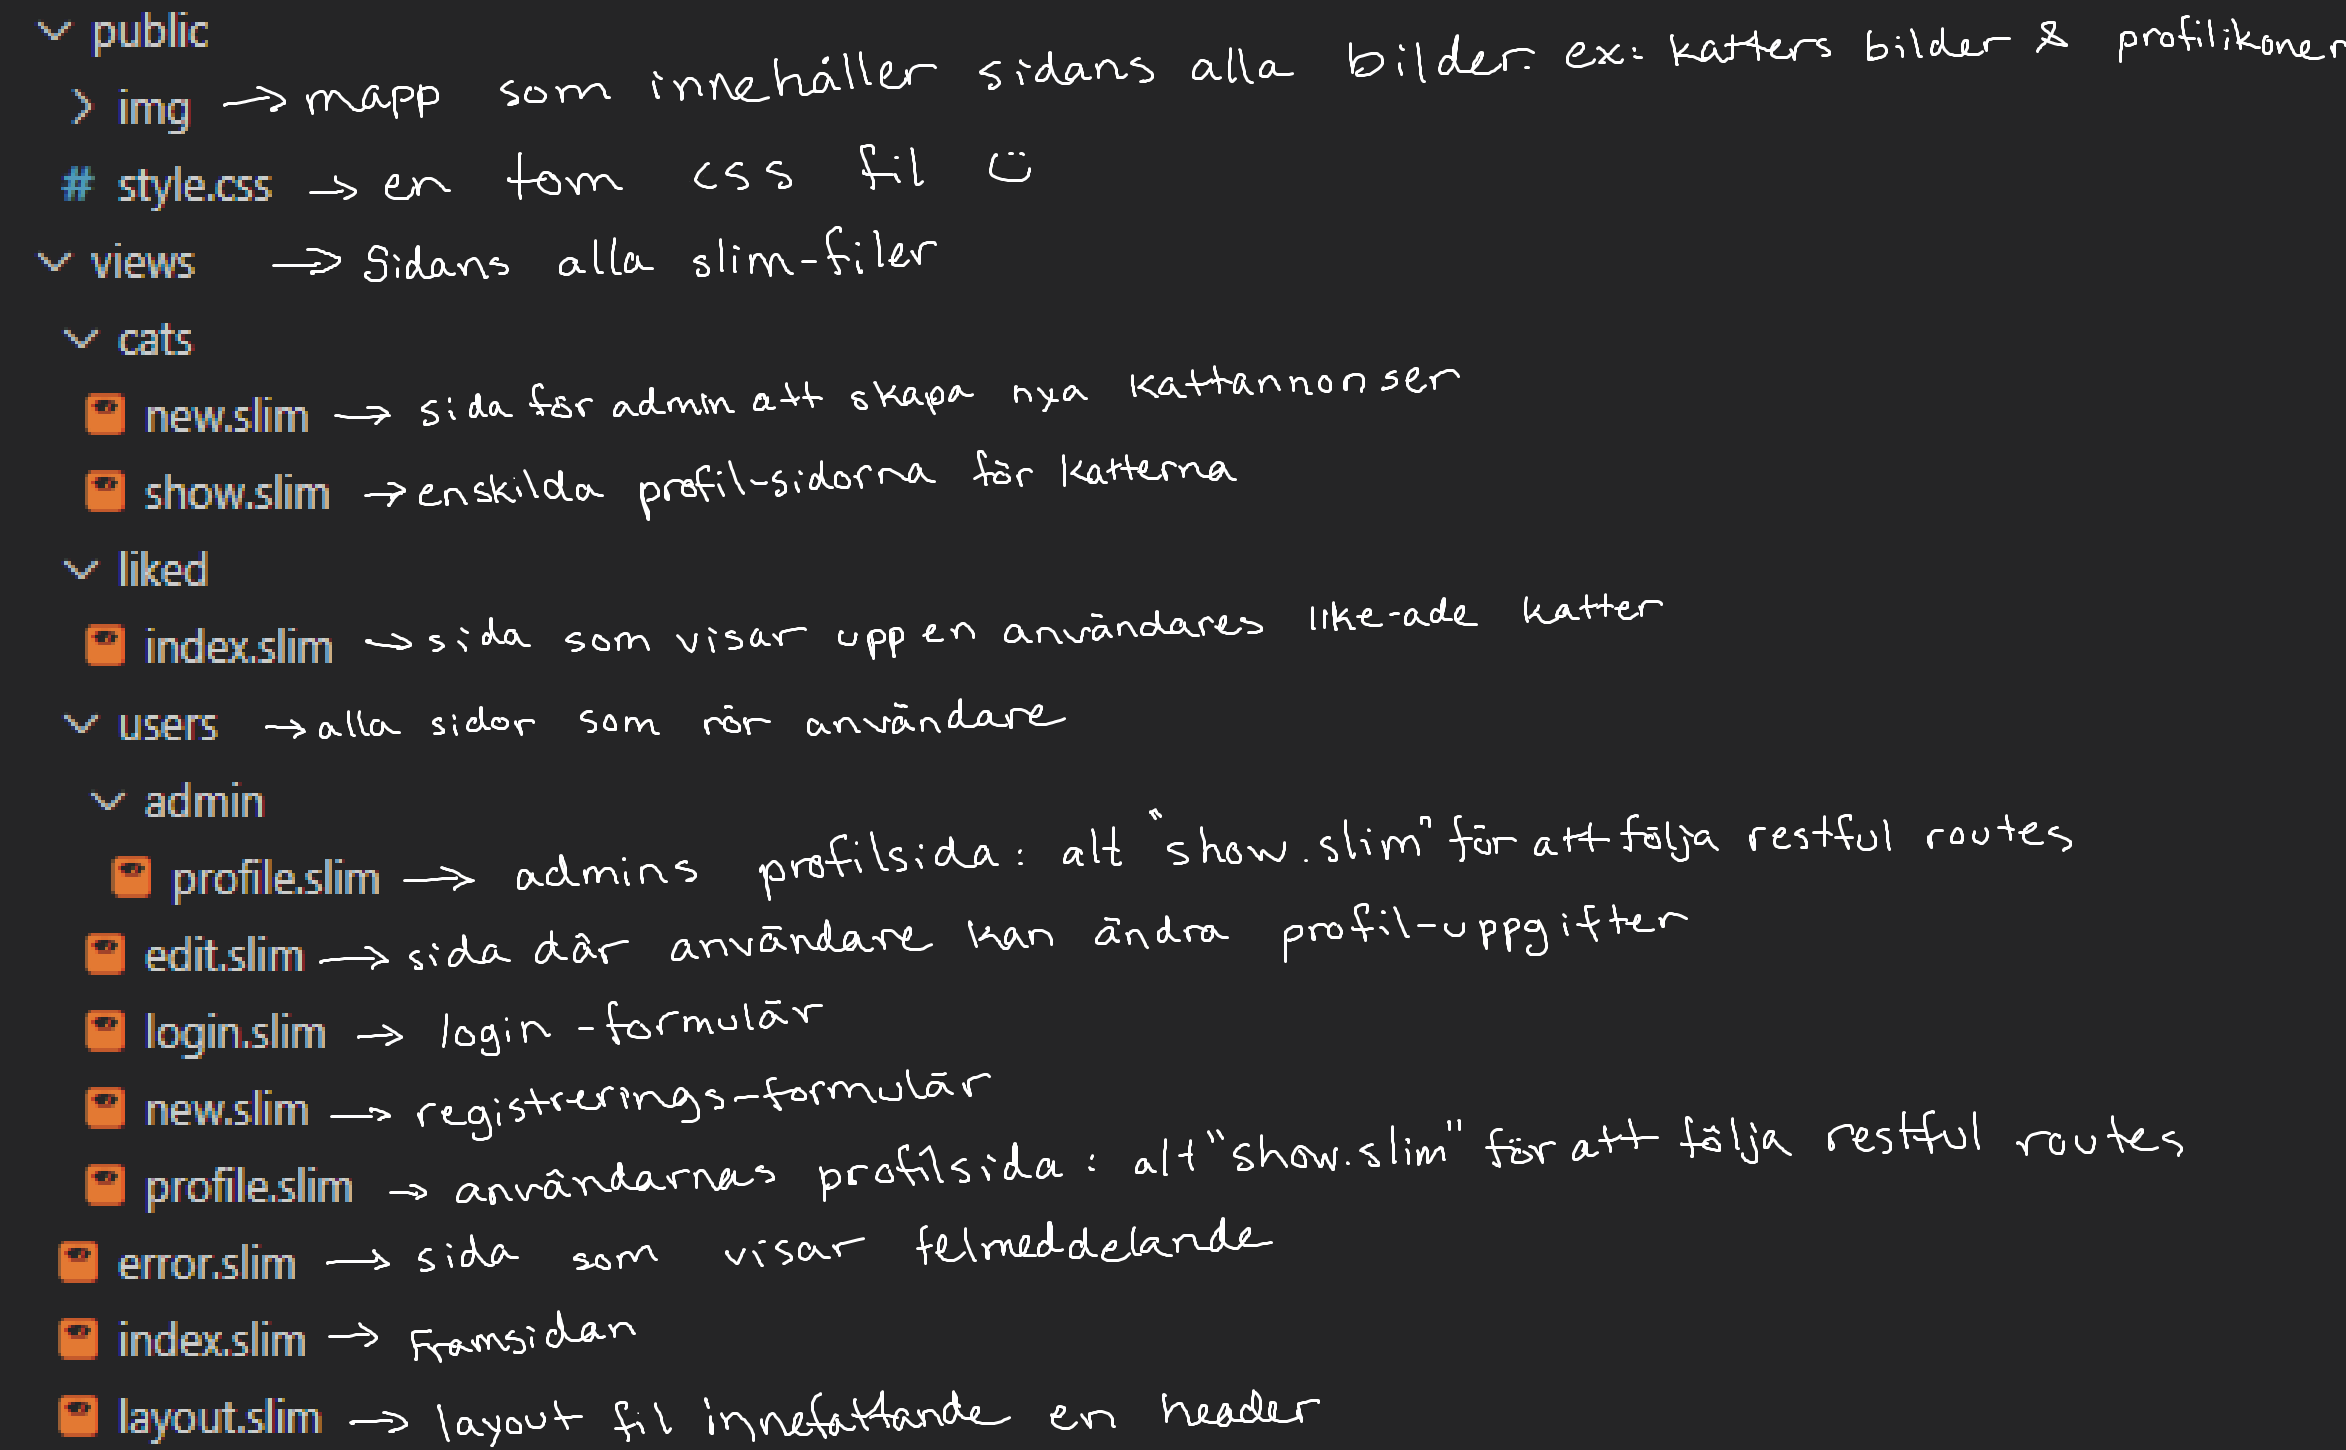 public
img → mapp som innehåller sidans alla bilder. ex: katters bilder & profilikoner
# style.css → en tom css fil :)
views → Sidans alla slim-filer
cats
new.slim → sida för admin att skapa nya kattannonser
show.slim → enskilda profil-sidorna för katterna
liked
index.slim → sida som visar upp en användares like-ade katter
users → alla sidor som rör användare
admin
profile.slim → admins profilsida: alt "show.slim" för att följa restful routes
edit.slim → sida där användare kan ändra profil-uppgifter
login.slim → login-formulär
new.slim → registrerings-formulär
profile.slim → användarnas profilsida: alt "show.slim" för att följa restful routes
error.slim → sida som visar felmeddelande
index.slim → Framsidan
layout.slim → layout fil innefattande en header